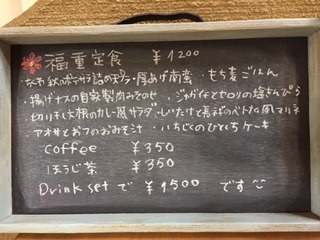 福重定食 ¥1200
秋のポテサラ詰め ・厚あげ南蛮 ・もち麦ごはん
・揚げナスの自家製肉みそのせ ・ジャガイモとセロリの塩きんぴら
・切り干し大根のカレー風サラダ ・しいたけと長ネギのベトナム風マリネ
・アオサとおふのおみそ汁 ・いちじくのひとくちケーキ
coffee ¥350
ほうじ茶 ¥350
Drink set で ¥1500 です